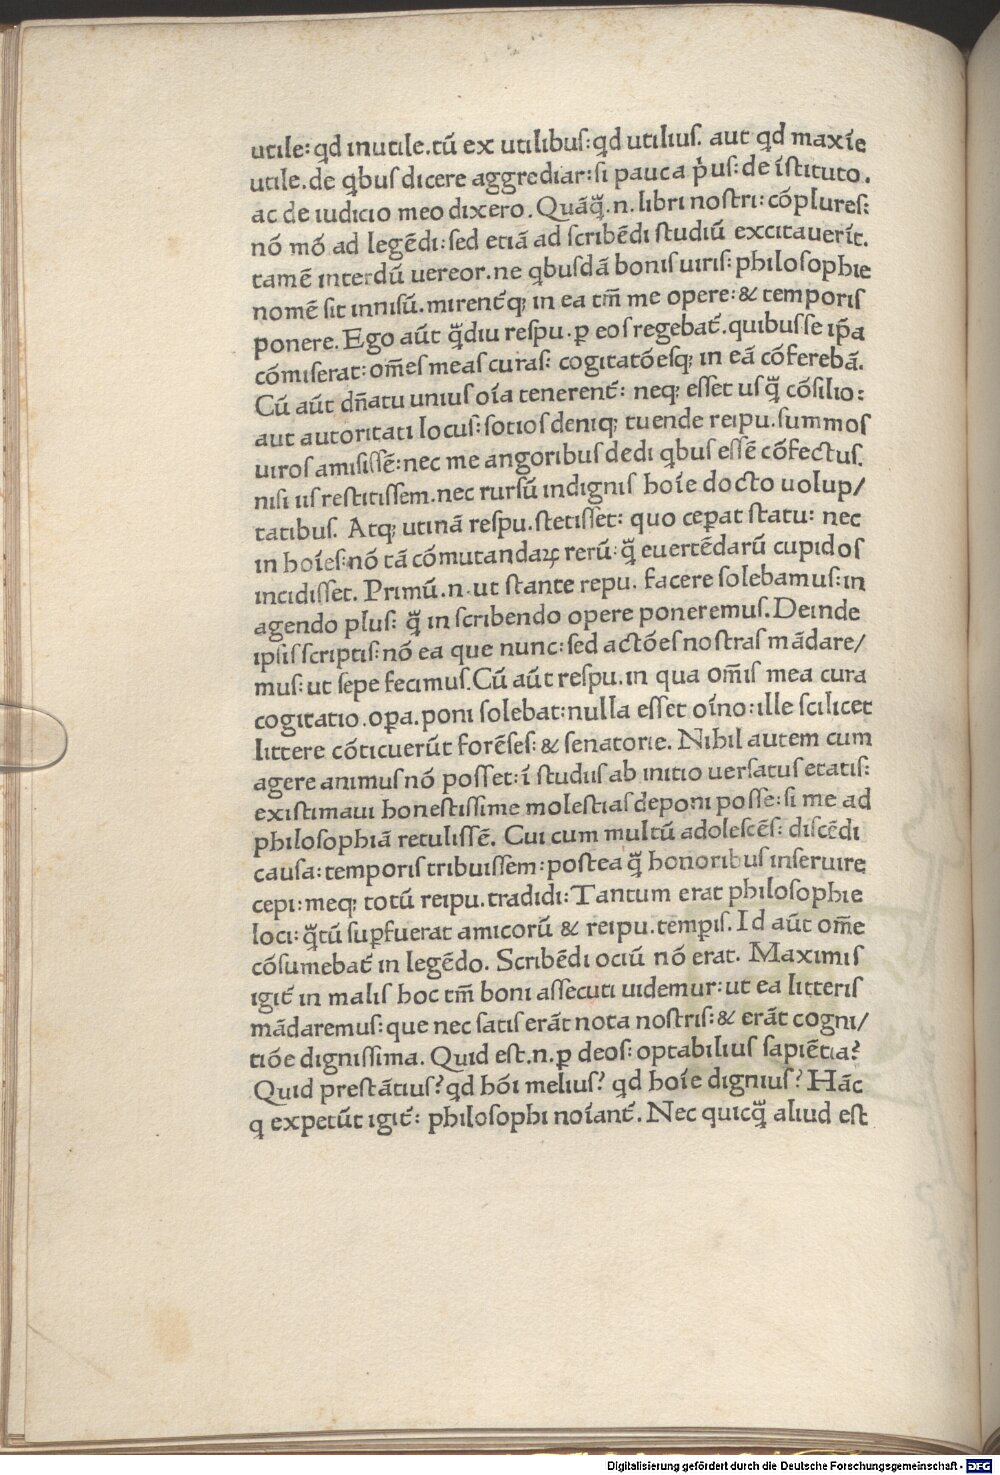 utile: qd inutile. tū ex utilibus: qd utilius. aut qd maxīe
utile. de qbus dicere aggrediar: si pauca p̓us: de īstituto.
ac de iudicio meo dixero. Quāq̄. n. libri nostri: cōplures:
nō mō ad legēdi: sed etiā ad scribēdi studiū excitauerīt.
tamē interdū uereor. ne qbusdā bonis uiris: philosophie
nomē sit inuisū. mirent̄q; in ea tm̄ me opere: & temporis
ponere. Ego aūt q̄diu respu. ꝑ eos regebat̄. quibus se ip̄a
cōmiserat: om̄es meas curas: cogitatōesq; in eā cōferebā.
Cū aūt dn̄atu unius oīa tenerent̄: neq; esset usq̄ cōsilio:
aut autoritati locus: sotios deniq; tuende reipu. summos
uiros amisissē: nec me angoribus dedi qbus essē cōfectus.
nisi iis restitissem. nec rursū indignis hoīe docto uolup/
tatibus. Atq; utinā respu. stetisset: quo ceꝑat statu: nec
in hoīes: nō tā cōmutandaꝝ rerū: q̄ euertēdarū cupidos
incidisset. Primū. n. ut stante repu. facere solebamus: in
agendo plus: q̄ in scribendo opere poneremus. Deinde
ipsis scriptis: nō ea que nunc: sed actōes nostras mādare/
mus: ut sepe fecimus. Cū aūt respu. in qua om̄is mea cura
cogitatio. oꝑa. poni solebat: nulla esset oīno: ille scilicet
littere cōticuerūt forēses: & senatorie. Nihil autem cum
agere animus nō posset: ī studiis ab initio uersatus etatis:
existimaui honestissime molestias deponi posse: si me ad
philosophiā retulissē. Cui cum multū adolescēs: discēdi
causa: temporis tribuissem: postea q̄ honoribus inseruire
cepi: meq; totū reipu. tradidi: Tantum erat philosophie
loci: q̄tū suꝑfuerat amicorū & reipu. temꝑis. Id aūt om̄e
cōsumebat̄ in legēdo. Scribēdi ociū nō erat. Maximis
igit̄ in malis hoc tm̄ boni assecuti uidemur: ut ea litteris
mādaremus: que nec satis erāt nota nostris: & erāt cogni/
tiōe dignissima. Quid est. n. ꝑ deos: optabilius sapiētia?
Quid prestātius? qd hōi melius? qd hoīe dignius? Hāc
q expetūt igit̄: philosophi noīant̄. Nec quicq̄ aliud est
Digitalisierung gefördert durch die Deutsche Forschungsgemeinschaft - DFG